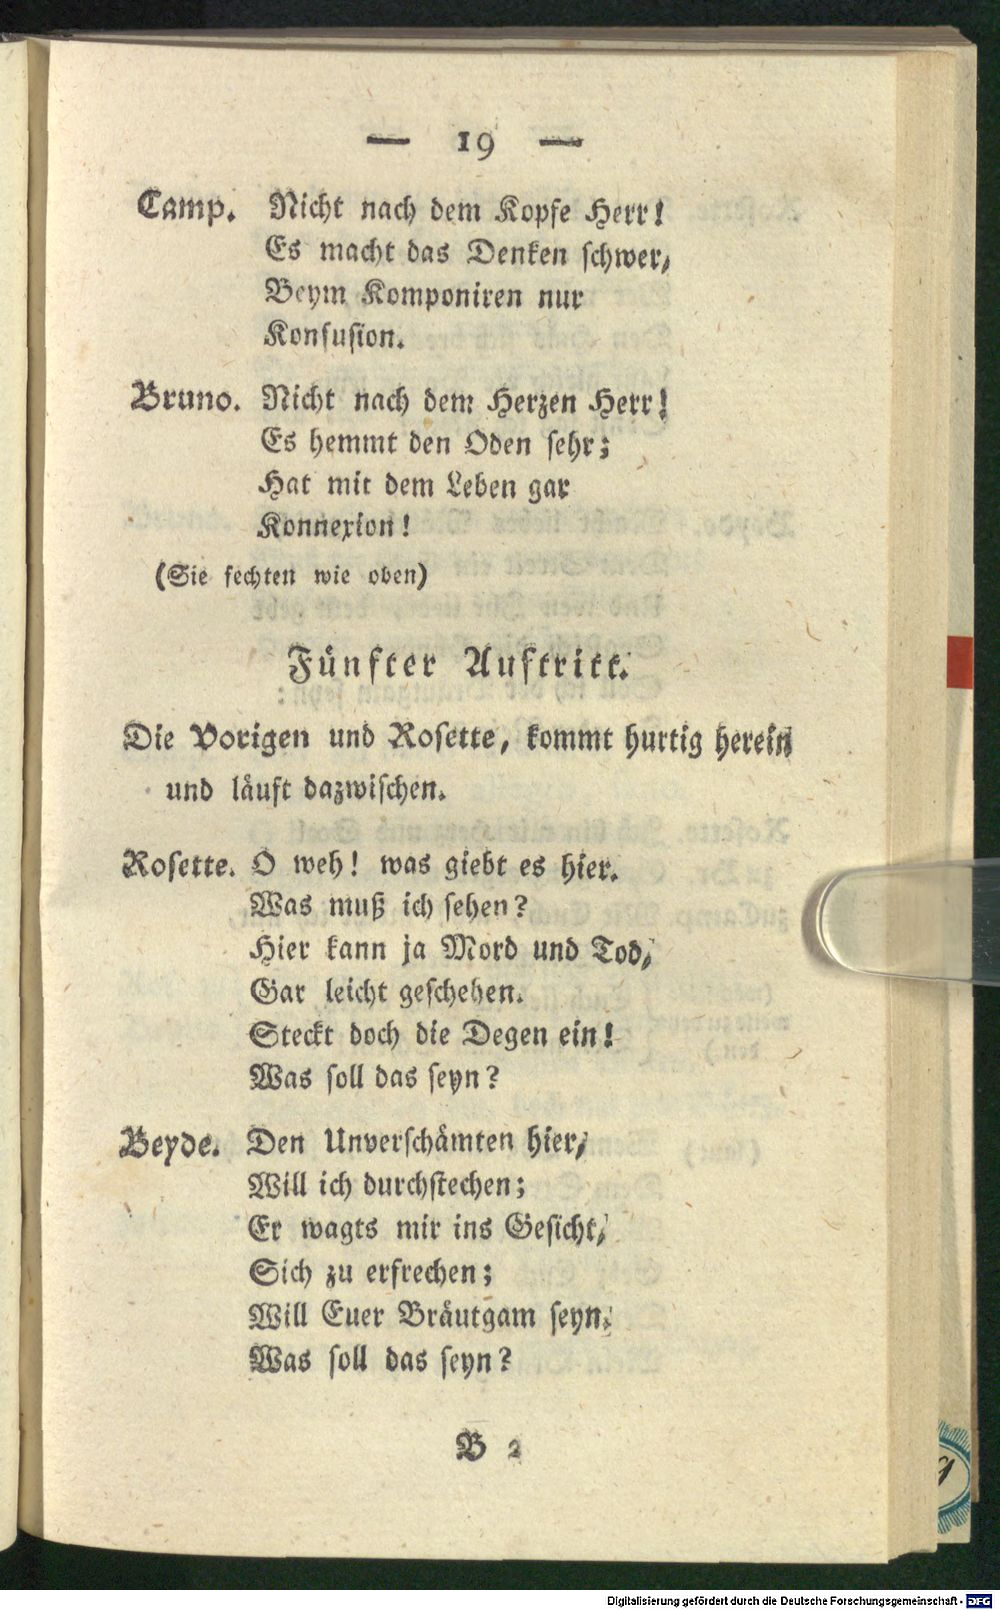 — 19 —
Camp. Nicht nach dem Kopfe Herr!
Es macht das Denken schwer,
Beym Komponiren nur
Konfusion.
Bruno. Nicht nach dem Herzen Herr!
Es hemmt den Oden sehr;
Hat mit dem Leben gar
Konnexion!
(Sie fechten wie oben)
Fünfter Auftritt.
Die Vorigen und Rosette, kommt hurtig herein
und läuft dazwischen.
Rosette. O weh! was giebt es hier.
Was muß ich sehen?
Hier kann ja Mord und Tod,
Gar leicht geschehen.
Steckt doch die Degen ein!
Was soll das seyn?
Beyde. Den Unverschämten hier,
Will ich durchstechen;
Er wagts mir ins Gesicht,
Sich zu erfrechen;
Will Euer Bräutgam seyn.
Was soll das seyn?
B 2
Digitalisierung gefördert durch die Deutsche Forschungsgemeinschaft - DFG